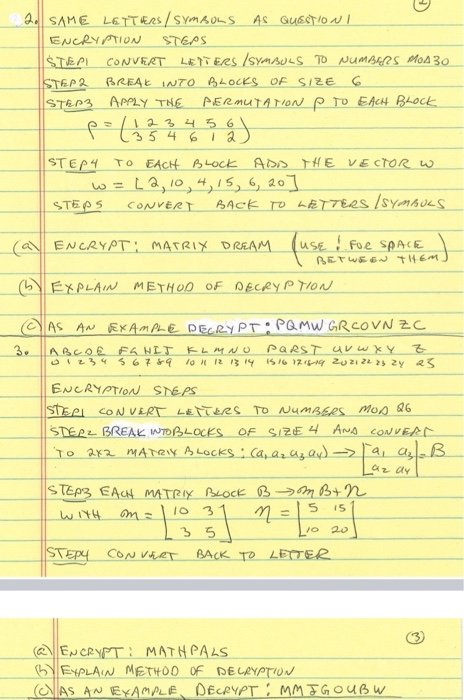 ②
2. SAME LETTERS/SYMBOLS AS QUESTION 1
ENCRYPTION STEPS
STEP1 CONVERT LETTERS/SYMBOLS TO NUMBERS MOD 30
STEP2 BREAK INTO BLOCKS OF SIZE 6
STEP3 APPLY THE PERMUTATION P TO EACH BLOCK
P = (1 2 3 4 5 6
3 5 4 6 1 2)
STEP4 TO EACH BLOCK ADD THE VECTOR W
W = [2, 10, 4, 15, 6, 20]
STEP5 CONVERT BACK TO LETTERS/SYMBOLS
(a) ENCRYPT: MATRIX DREAM (USE ! FOR SPACE BETWEEN THEM)
(b) EXPLAIN METHOD OF DECRYPTION
(c) AS AN EXAMPLE DECRYPT: PQMWGRCOVNZC
3. ABCDE FGHIJ KLMNO PQRST UVWXY Z
0 1 2 3 4 5 6 7 8 9 10 11 12 13 14 15 16 17 18 19 20 21 22 23 24 25
ENCRYPTION STEPS
STEP1 CONVERT LETTERS TO NUMBERS MOD 26
STEP2 BREAK INTO BLOCKS OF SIZE 4 AND CONVERT
TO 2x2 MATRIX BLOCKS: (a1 a2 a3 a4) → [a1 a3
a2 a4] = B
STEP3 EACH MATRIX BLOCK B → mB + n
WITH m = [10 3
3 5] n = [5 15
10 20]
STEP4 CONVERT BACK TO LETTER
③
(a) ENCRYPT: MATHPALS
(b) EXPLAIN METHOD OF DECRYPTION
(c) AS AN EXAMPLE, DECRYPT: MMJGOUBW